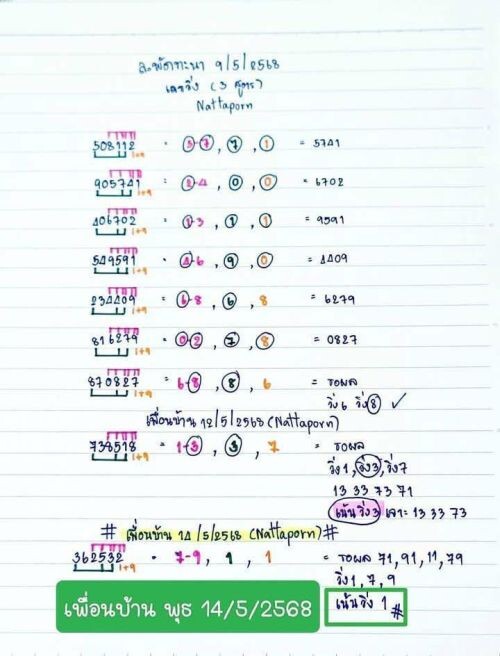 ละพัฒนา 9/5/2568
เลขวิ่ง (3 สูตร)
Nattaporn
508112 1+9 = 5-7, 7, 1 = 5741
905741 1+9 = 2-4, 0, 0 = 6702
406702 1+9 = 1-3, 1, 1 = 9591
549591 1+9 = 4-6, 9, 0 = 4409
234409 1+9 = 6-8, 6, 8 = 6279
816279 1+9 = 0-2, 7, 8 = 0827
870827 1+9 = 6-8, 8, 6 = รอผล
วิ่ง 6 วิ่ง 8 ✓
เพื่อนบ้าน 12/5/2568 (Nattaporn)
738518 1+9 = 1-3, 3, 7 = รอผล
วิ่ง 1, วิ่ง 3, วิ่ง 7
13 33 73 71
เน้นวิ่ง 3 เจาะ = 13 33 73
# เพื่อนบ้าน 14/5/2568 (Nattaporn) #
362532 1+9 = 7-9, 1, 1 = รอผล 71, 91, 11, 79
วิ่ง 1, 7, 9
เน้นวิ่ง 1 #
เพื่อนบ้าน พุธ 14/5/2568